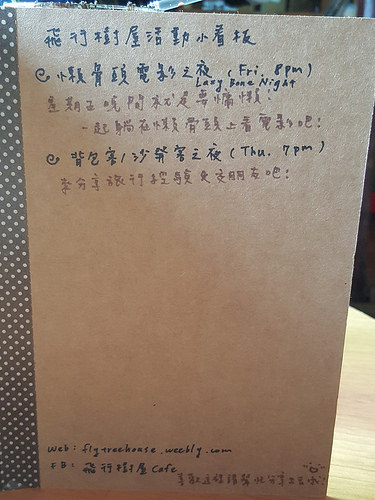 飛行樹屋活動小看板
懶骨頭電影之夜 (Fri. 8pm)
Lazy Bone Night
星期五晚間就是要慵懶!
一起躺在懶骨頭上看電影吧!
背包客/沙發客之夜 (Thu. 7pm)
來分享旅行經驗兼交朋友吧!
Web: flytreehouse.weebly.com
FB: 飛行樹屋Cafe
喜歡這裡請幫忙分享